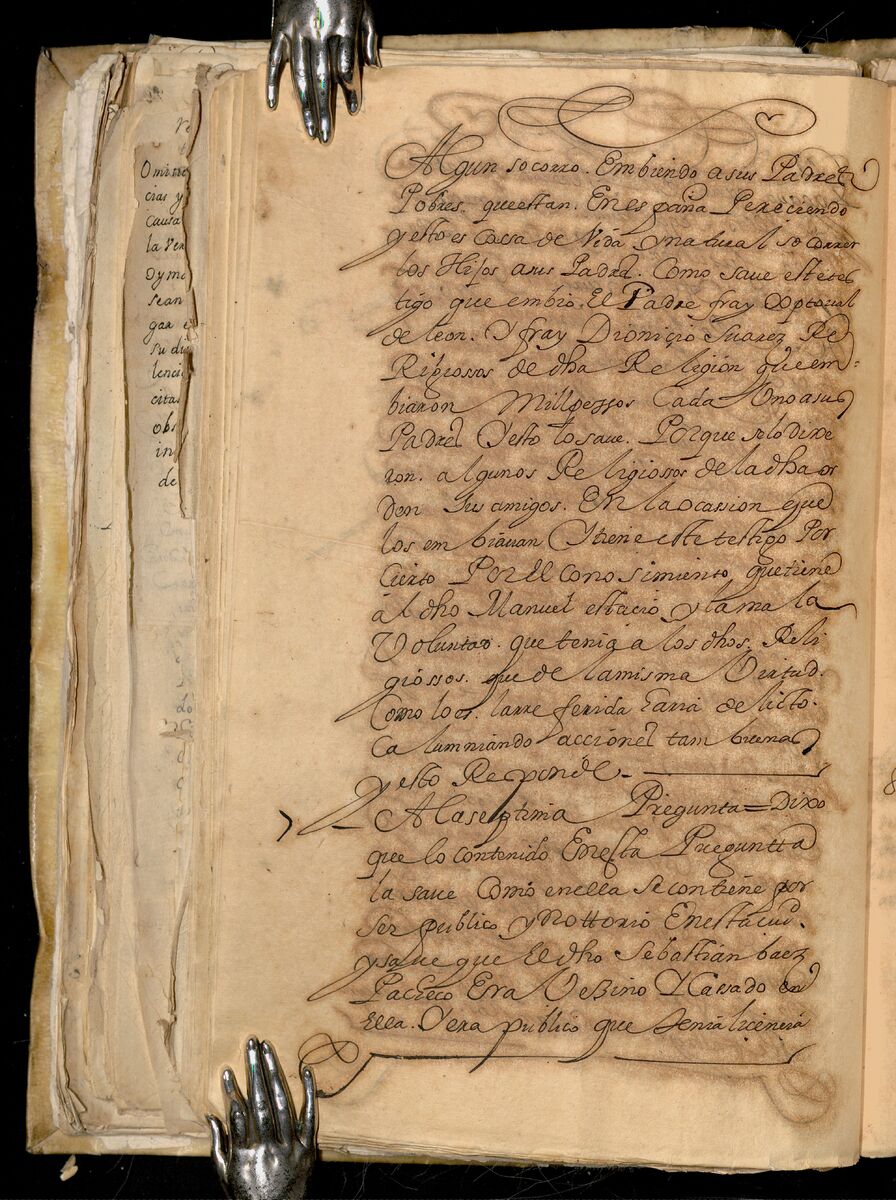 re
Omisio
cias y
causa
la Ver
oy ma
sean
gar e
su di
lencia
citas
obs
in
de
Algun socorro. Embiendo asus Padres
Pobres. queestan. En españa Pereciendo
y esto es Cossa de Vida y natural socorrer
los Hijos asus Padres. Como save estetes
tigo que embio. El Padre fray
de leon. Y fray Dioniçio Suarez Re
Religiossos de dha Religion que em-
biaron Mill pessos Cada Uno asus
Padres Y esto lo save. Porque se lo dixe
ron. algunos Religiossos de la dha or
den sus amigos. En la ocassion que
los embiauan Y tiene este testigo Por
Cierto Por El Conossimiento que tiene
al dho Manuel estacio y la mala
Voluntad. que tenia a los dhos. Reli
giossos. que de la misma Vertud.
Como lo es. la rreferida haria delicto.
Calumniando acciones tam buenas
y esto Responde.
A la septima Pregunta = Dixo
que lo contenido En esta Preguntta
la save Como en ella se contiene por
ser publico y Nottorio En esta ciud.
y save que El dho sebastian baez
Pacheco Era Vezino Y Cassado en
Ella. Y era publico que tenia licencia